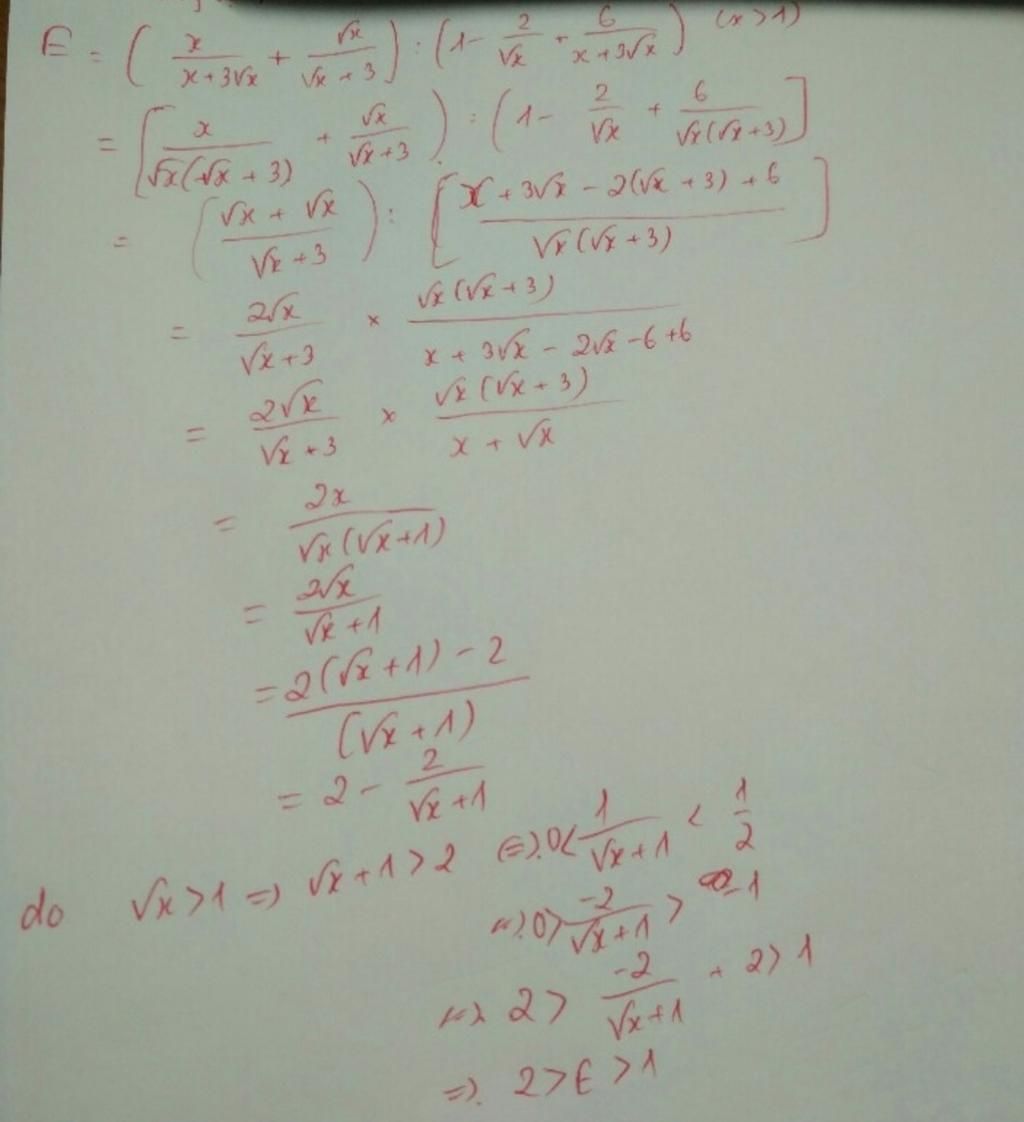 E = ( x/(x+3√x) + √x/(√x+3) ) : (1 - 2/√x + 6/(x+3√x) ) (x>1)
= [ x/(√x(√x+3)) + √x/(√x+3) ) : (1 - 2/√x + 6/(√x(√x+3)) ]
= ( (√x+√x)/(√x+3) ) : [ (x+3√x-2(√x+3)+6)/(√x(√x+3)) ]
= 2√x/(√x+3) × √x(√x+3)/(x+3√x-2√x-6+6)
= 2√x/(√x+3) × √x(√x+3)/(x+√x)
= 2x/(√x(√x+1))
= 2√x/(√x+1)
= (2(√x+1)-2)/(√x+1)
= 2 - 2/(√x+1)
do √x>1 => √x+1>2 (=) 0< 1/(√x+1) < 1/2
=> 0> -2/(√x+1) > -1
=> 2> -2/(√x+1) + 2>1
=> 2>E>1